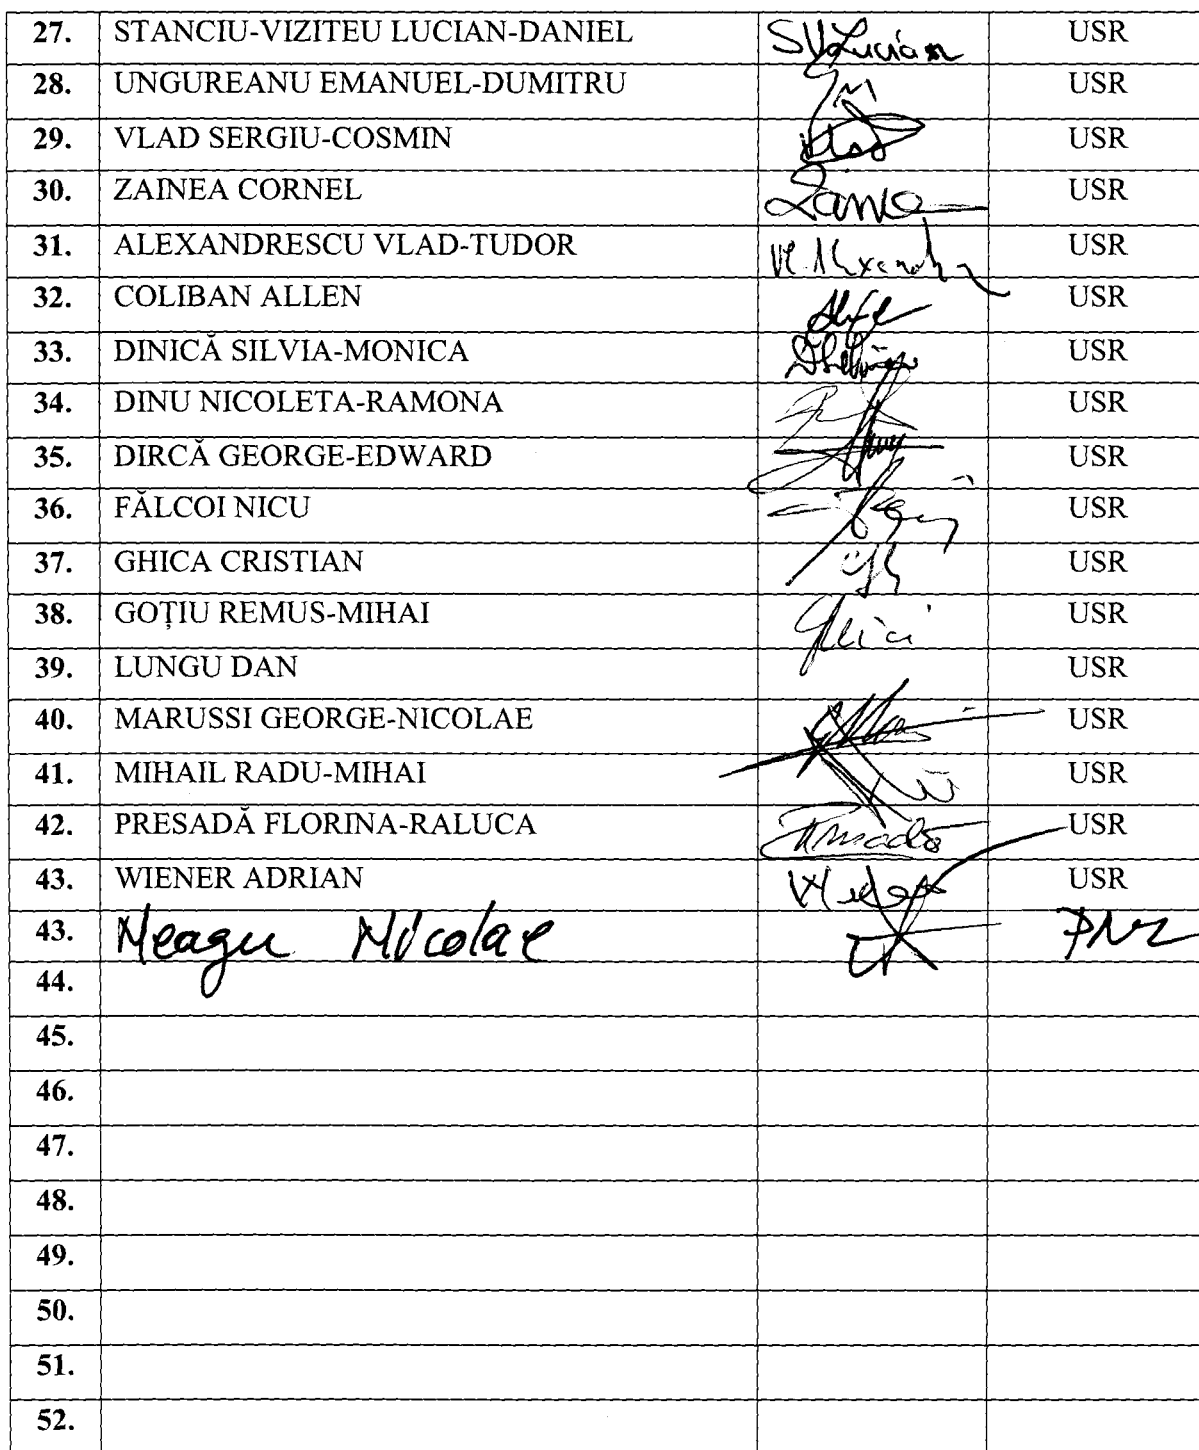 27. STANCIU-VIZITEU LUCIAN-DANIEL SVLucian USR
28. UNGUREANU EMANUEL-DUMITRU USR
29. VLAD SERGIU-COSMIN Vlad USR
30. ZAINEA CORNEL USR
31. ALEXANDRESCU VLAD-TUDOR USR
32. COLIBAN ALLEN USR
33. DINICĂ SILVIA-MONICA USR
34. DINU NICOLETA-RAMONA USR
35. DIRCĂ GEORGE-EDWARD USR
36. FĂLCOI NICU USR
37. GHICA CRISTIAN USR
38. GOȚIU REMUS-MIHAI USR
39. LUNGU DAN USR
40. MARUSSI GEORGE-NICOLAE USR
41. MIHAIL RADU-MIHAI USR
42. PRESADĂ FLORINA-RALUCA USR
43. WIENER ADRIAN USR
43. Neagu Nicolae PNL
44.
45.
46.
47.
48.
49.
50.
51.
52.